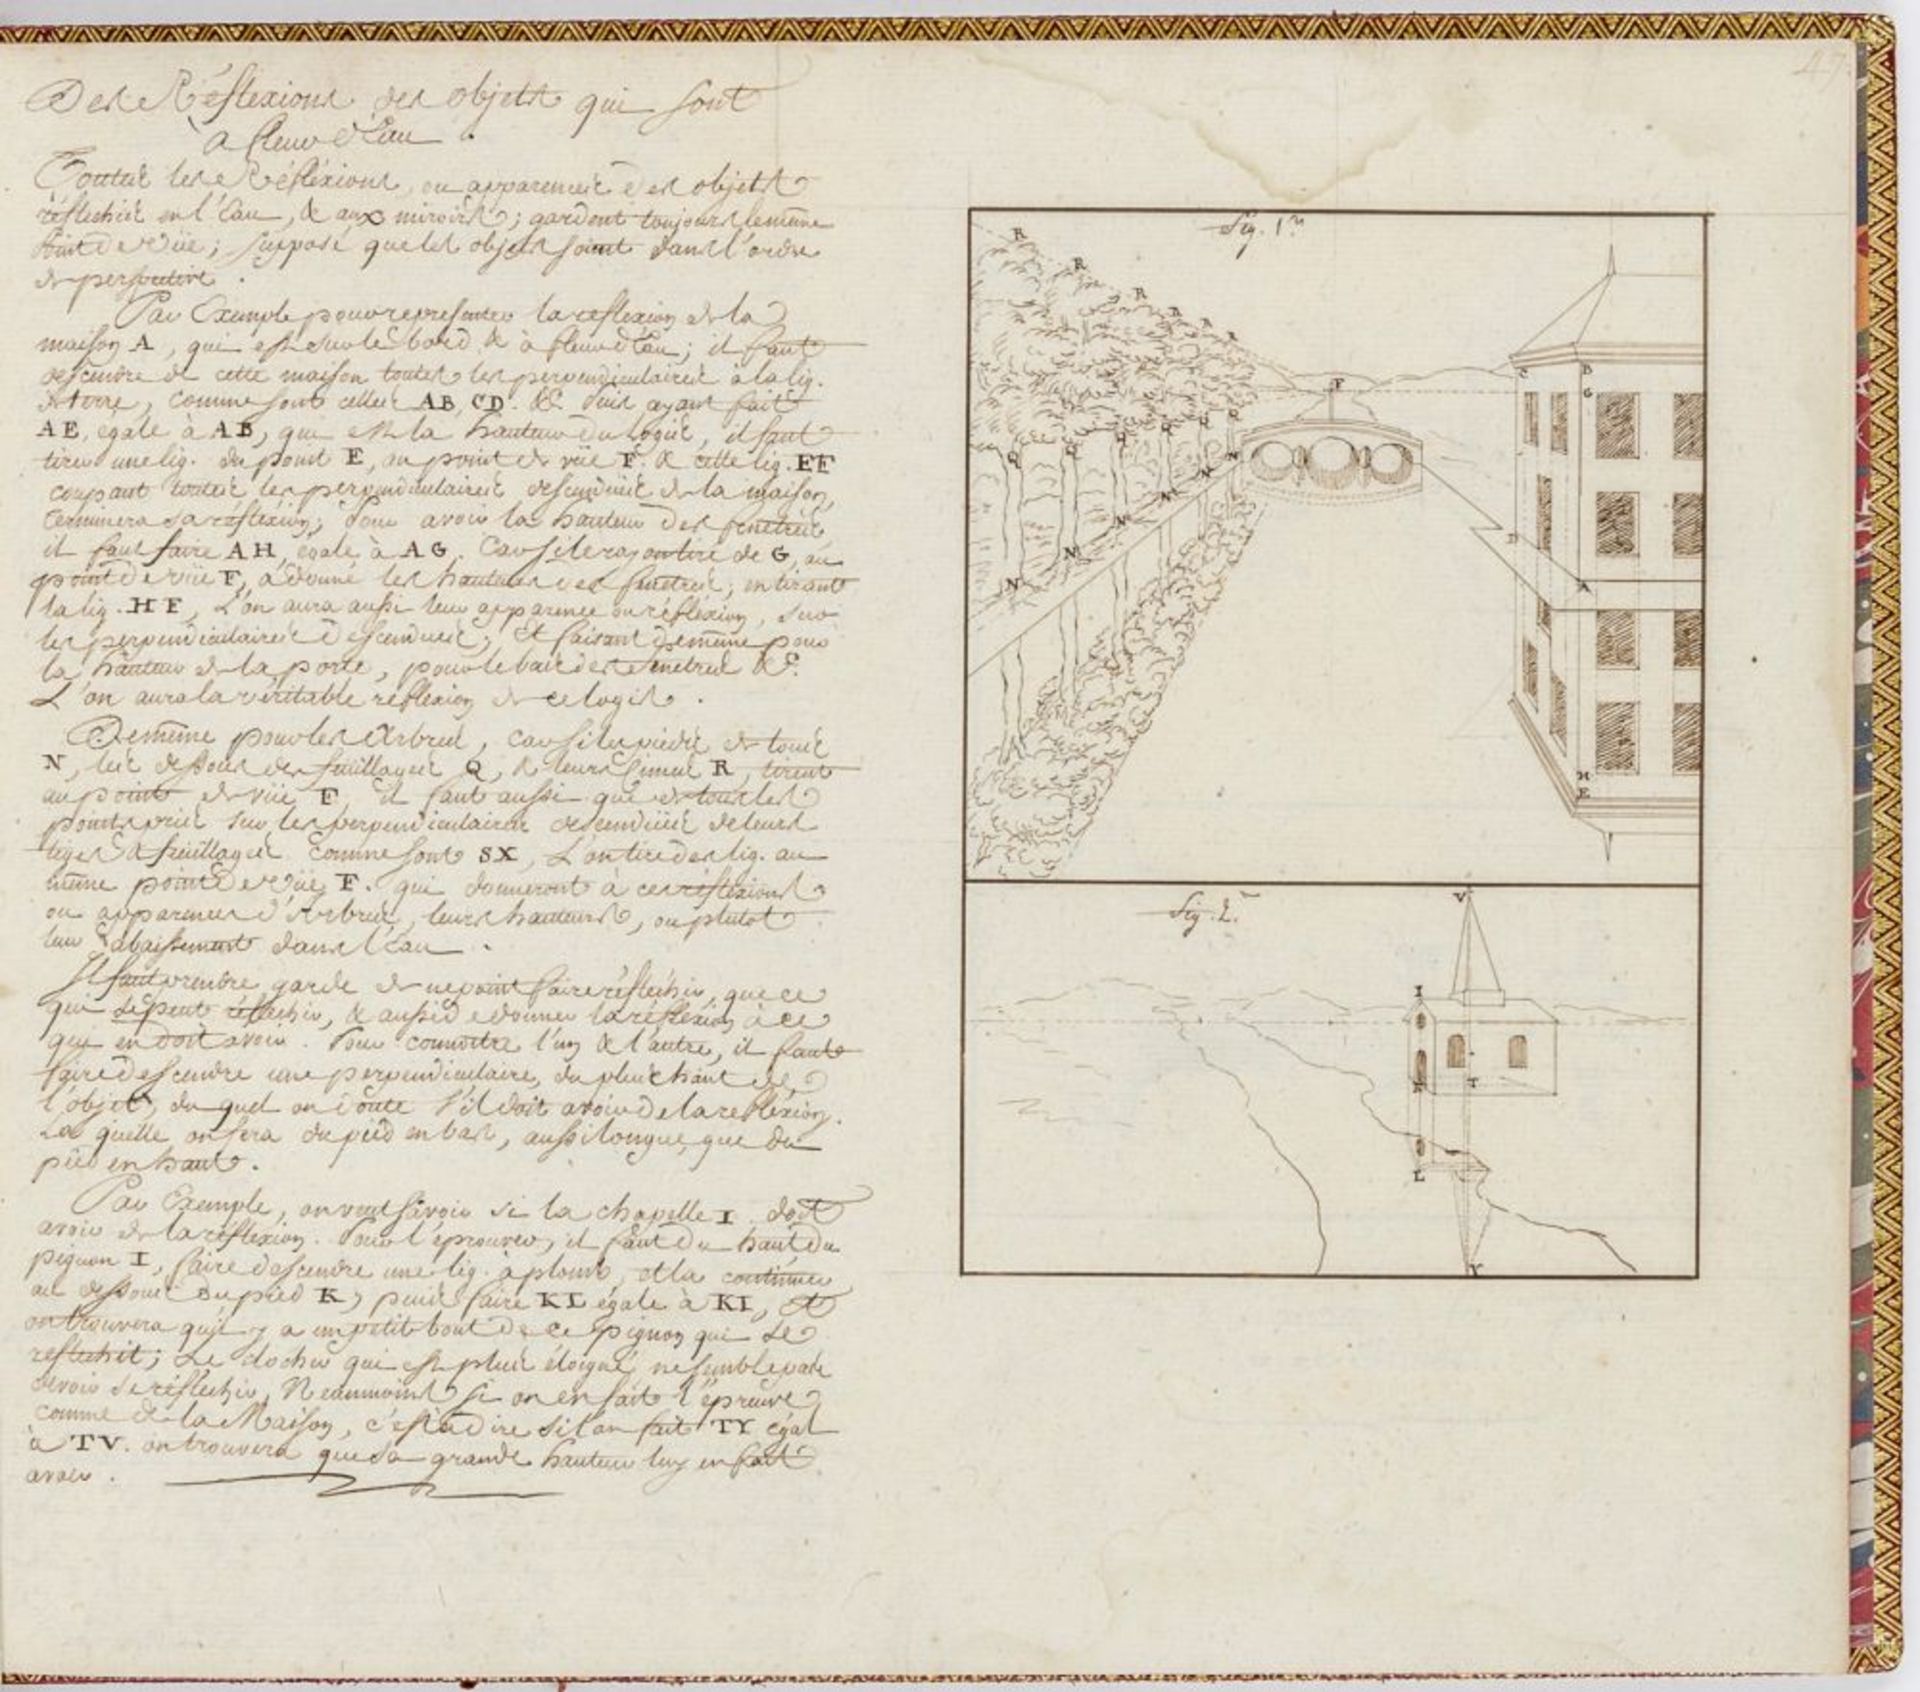 Des Réflexions des objets qui sont
à fleur d'Eau .
Toutes les Réfléxions, ou apparences des objets
réflechies en l'Eau, & aux miroirs ; gardent toujours le même
Point de Vüe ; supposé que les objets soient dans l'ordre
de perspective .
Par Exemple pour representer la reflexion de la
maison A , qui est sur le bord & à fleur d'Eau ; il faut
descendre de cette maison toutes les perpendiculaires à la lig.
de terre, comme sont celles AB, CD. &c. Puis ayant fait
AE, égale à AB, qui est la hauteur du logis, il faut
tirer une lig. du point E, au point de vüe F. & cette lig. EF
coupant toutes les perpendiculaires descendües de la maison,
terminera sa réfléxion ; Pour avoir la hauteur des fenetres
il faut faire AH, égale à AG. Car si le rayon tiré de G, au
point de vüe F, a donné les hauteurs des fenetres ; en tirant
la lig. HF, L'on aura aussi leur apparence ou réfléxion, sur
les perpendiculaires descendues ; Et faisant de même pour
la hauteur de la porte, pour le bas des fenetres &c.
L'on aura la véritable réflexion de ce logis .
De même pour les Arbres, car si les pieds de tous
N, les dessous des feuillages Q, & leurs cimes R, tirent
au point de vüe F, il faut aussi que de tous les
points pris sur les perpendiculaires descendües de leurs
tiges & feuillages comme sont SX, L'on tire des lig. au
même point de Vüe F. qui donneront à ces réflexions
ou apparences d'Arbres, leurs hauteurs, ou plutot
leur abaissement dans l'Eau .
Il faut prendre garde de ne point faire réfléchir, que ce
qui se peut réflechir, & aussi de donner la réflexion à ce
qui en doit avoir. Pour connoitre l'un & l'autre, il faut
faire descendre une perpendiculaire, du plus haut de
l'objet, du quel on doute s'il doit avoir de la reflexion.
La quelle on fera du pied en bas, aussi longue, que du
pied en haut .
Par Exemple, on veut sçavoir si la chapelle I doit
avoir de la réflexion. Pour l'éprouver, il faut du haut du
pignon I, faire descendre une lig. à plomb, et la continuer
au dessous du pied K, puis faire KL égale à KI, et
on trouvera qu'il y a un petit bout de ce pignon qui se
reflechit ; Le clocher qui est plus éloigné ne semble pas
devoir se réflechir, Neanmoins si on en fait l'épreuve
comme de la Maison, c'est à dire si l'on fait TY égal
à TV. on trouvera que sa grande hauteur luy en fait
avoir .
47
Fig. 1.re
R
R
R
R
R
R
F
C
B
G
Q
Q
Q
Q
Q
Q
N
N
N
N
N
N
D
A
H
E
Fig. 2.e
V
I
K
T
L
Y